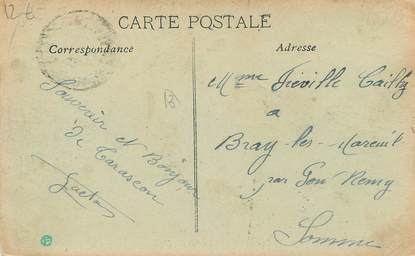 CARTE POSTALE
Correspondance
Adresse
Souvenir et Bonjour
de Tarascon
Gaston
Mme Tiéville Cailly
a
Bray-les-Mareuil
par Pon Remy
Somme